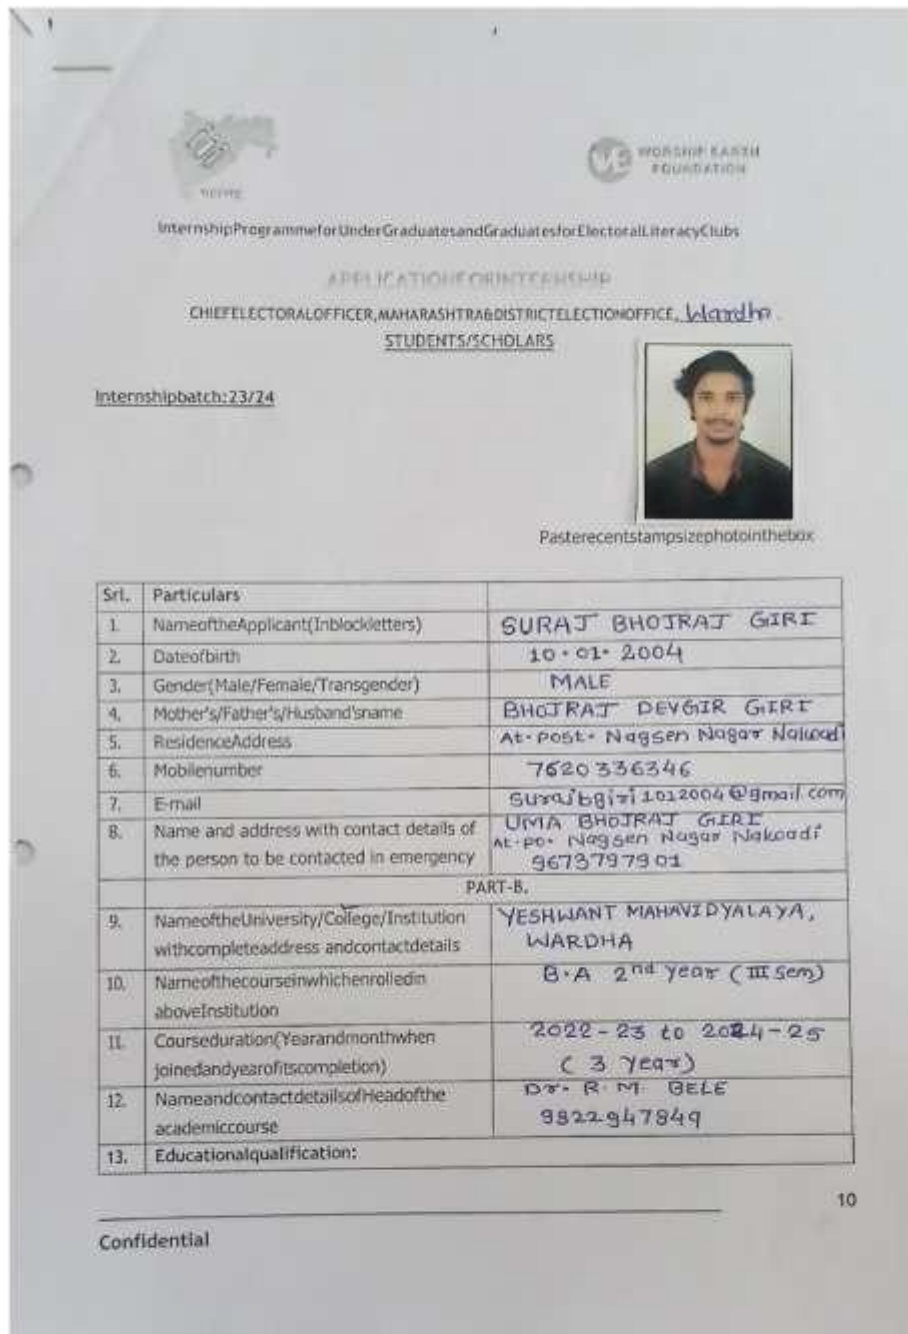 WORSHIP EARTH
FOUNDATION
InternshipProgrammeforUnderGraduatesandGraduatesforElectoralLiteracyClubs
APPLICATIONFORINTERNSHIP
CHIEFELECTORALOFFICER,MAHARASHTRA&DISTRICTELECTIONOFFICE, Wardha
STUDENTS/SCHOLARS
Internshipbatch:23/24
Pasterecentstampsizephotointhebox
Srl. Particulars
1. NameoftheApplicant(Inblockletters) SURAJ BHOJRAJ GIRI
2. Dateofbirth 10.01.2004
3. Gender(Male/Female/Transgender) MALE
4. Mother's/Father's/Husband'sname BHOJRAJ DEVGIR GIRI
5. ResidenceAddress At.post. Nagsen Nagar Nalwadi
6. Mobilenumber 7620336346
7. E-mail surajbgiri1012004@gmail.com
8. Name and address with contact details of the person to be contacted in emergency UMA BHOJRAJ GIRI
At.po. Nagsen Nagar Nalwadi
9673797901
PART-B.
9. NameoftheUniversity/College/Institution YESHWANT MAHAVIDYALAYA,
withcompleteaddress andcontactdetails WARDHA
10. Nameofthecourseinwhichenrolledin B.A 2nd year (III sem)
aboveInstitution
11. Courseduration(Yearandmonthwhen 2022-23 to 2024-25
joinedandyearofitscompletion) (3 Year)
12. NameandcontactdetailsofHeadofthe Dr. R.M. BELE
academiccourse 9822947849
13. Educationalqualification:
10
Confidential